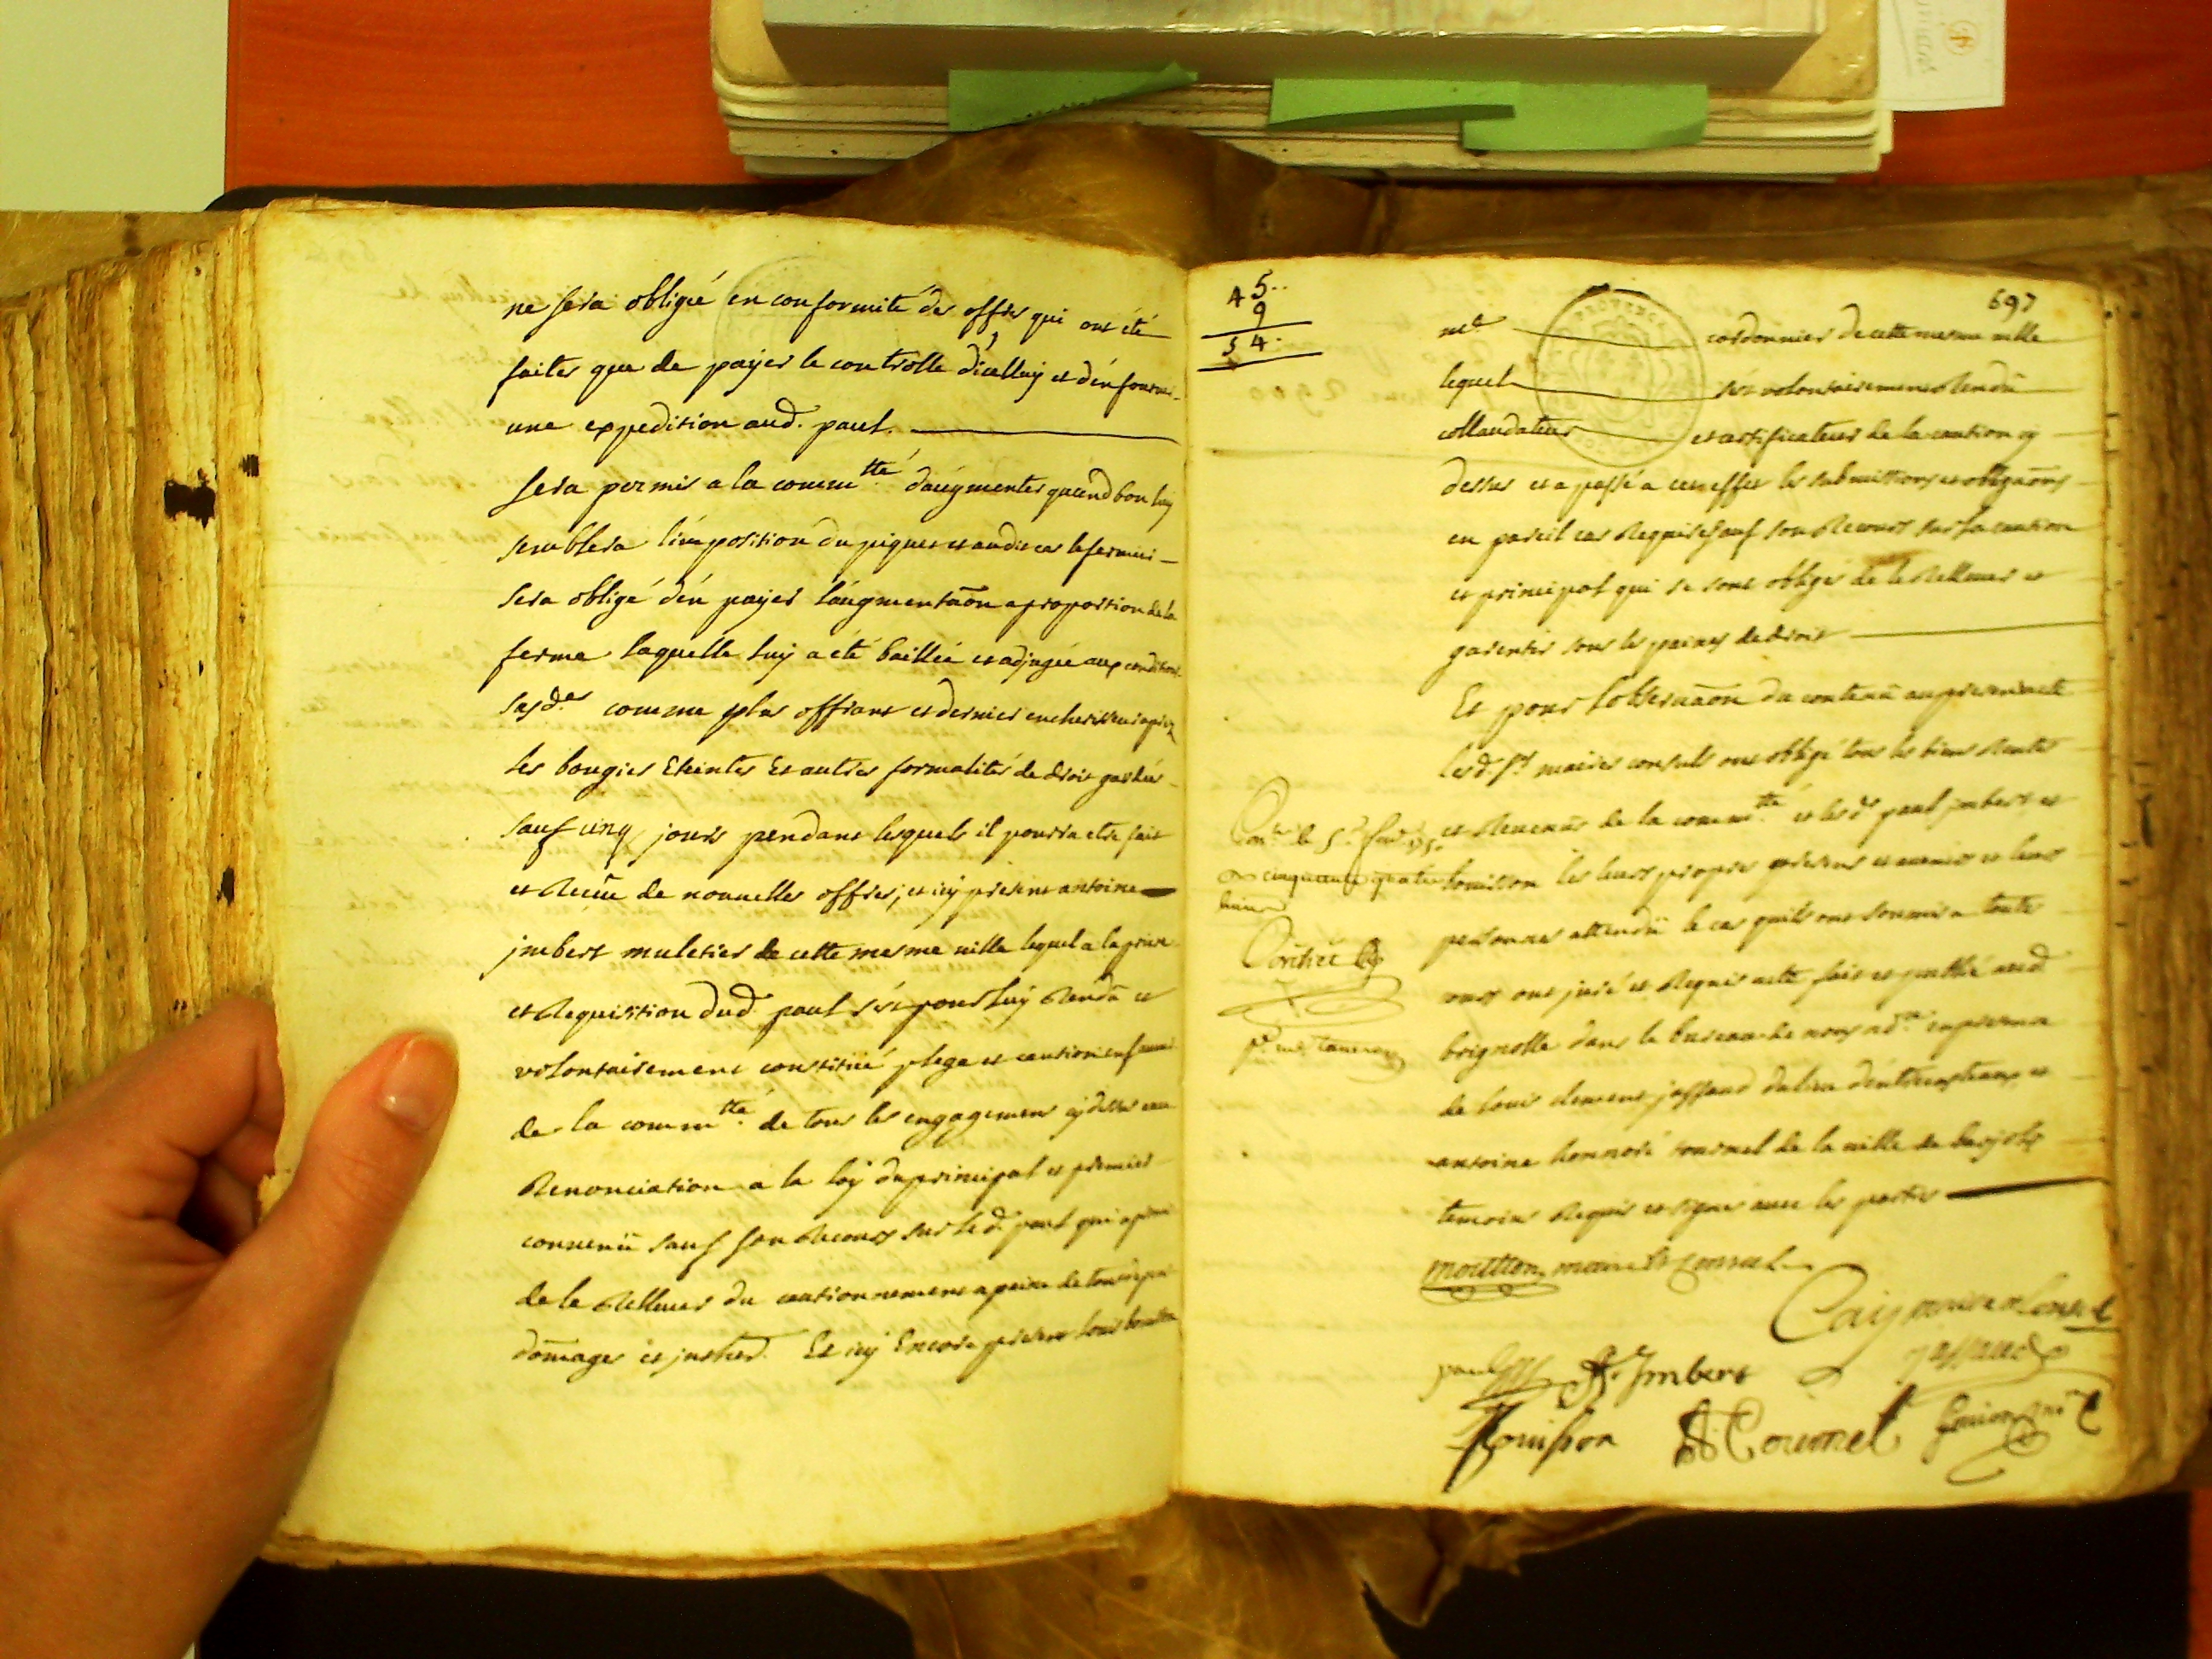 ne sera obligé en conformité des offres qui ont été
faites que de payer le controlle d'icelluy et d'en fournir
une expedition aud. paul.
sera permis a la comm.tté d'augmenter quand bon luy
semblera l'imposition du piquet et audit cas le fermier
sera obligé d'en payer l'augmentaon a proportion de la
ferme laquelle luy a été baillée et adjugée aux conditions
susd.es comme plus offrant et dernier encherisseur apres
les bougies Eteintes Et autres formalités de droit gardées
sauf cinq jours pendant lesquels il pourra etre fait
et Receu de nouvelles offres, et icy present antoine
jmbert muletier de cette mesme ville lequel a la priere
et Requisition dud. paul s'est pour luy Rendu et
volontairement constitué plege et caution en faveur
de la comm.tté de tous les engagemens cy dessus avec
Renonciation a la loy du principal et premier
convenu sauf son Recours sur led. paul qui a promis
de le Rellever du cautionnement a peine de tous depens
domages et jnthed. Et icy Encore present louis
45..
9
54.
697
me.
cordonnier de cette mesme ville
lequel s'est volontairement Rendu
collaudateur et certificateur de la caution cy
dessus et a passé a cet effet les submissions et obligaons
en pareil cas Requises sauf son Recours sur sa caution
et principal qui se sont obligés de le Rellever et
garentir sous les peines de droit
Et pour l'observaon du contenu au present acte
lesd. srs maires consuls ont obligé tous les biens Rentes
et Revenus de la comm.tté et lesd. paul jmbert et
les leurs propres presens et avenir et leurs
personnes attendu le cas qu'ils ont soumis a toutes
cours ont juré et Requis acte fait et publié aud.
brignolle dans le bureau de nous nd.re en presence
de louis clement jaffaud du lieu d'entrecasteaux et
antoine honnoré tournel de la ville de barjols
temoins Requis et signés avec les parties
moutton maire Consul
Caiy maire Consul
paul A. Jmbert jassaud